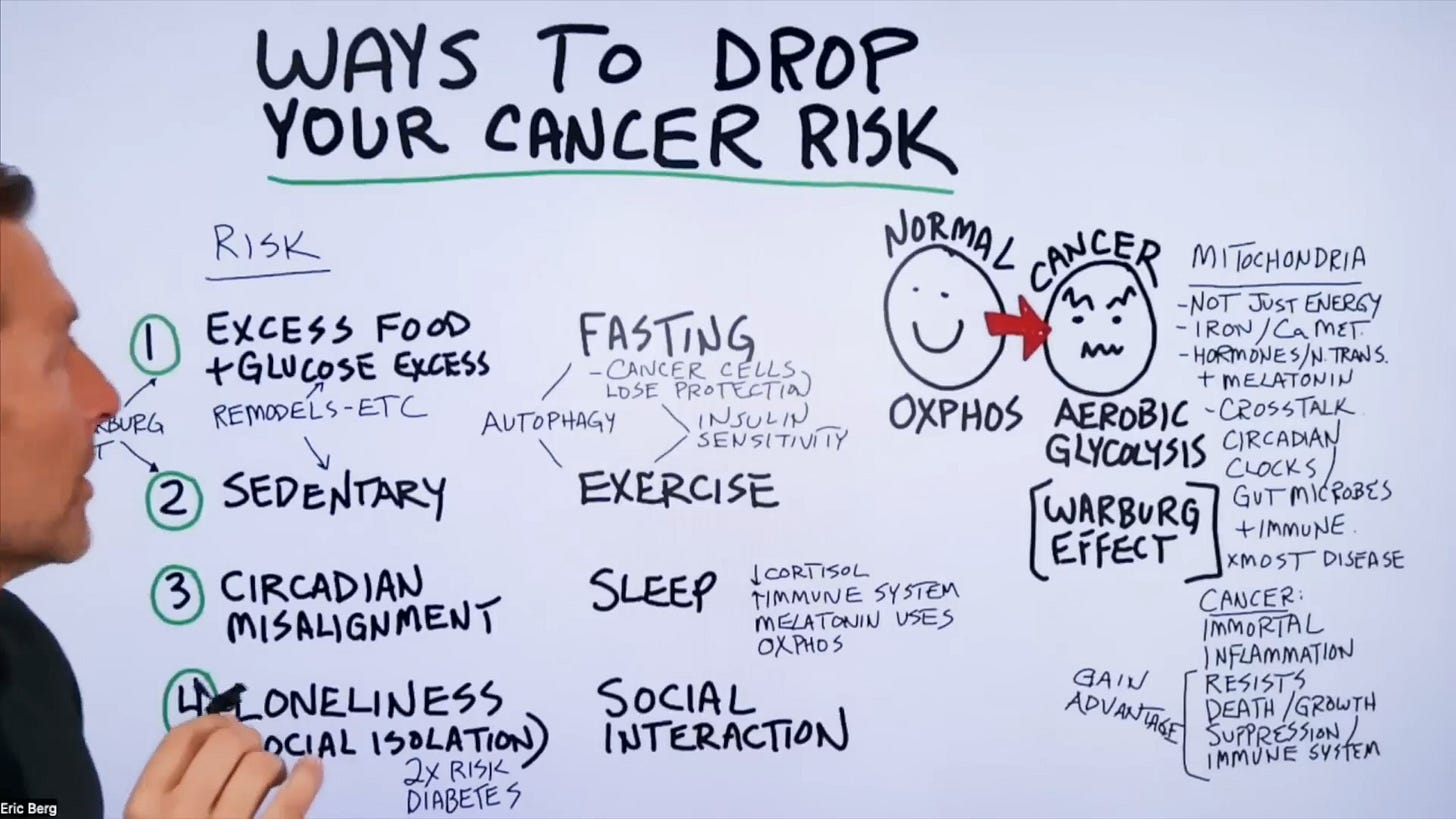 WAYS TO DROP
YOUR CANCER RISK
RISK
1 EXCESS FOOD
+GLUCOSE EXCESS
REMODELS-ETC
RBURG
T
2 SEDENTARY
3 CIRCADIAN
MISALIGNMENT
4 LONELINESS
OCIAL ISOLATION)
2X RISK
DIABETES
FASTING
-CANCER CELLS
LOSE PROTECTION
AUTOPHAGY
INSULIN
SENSITIVITY
EXERCISE
SLEEP
↓CORTISOL
↑IMMUNE SYSTEM
MELATONIN USES
OXPHOS
SOCIAL
INTERACTION
NORMAL
OXPHOS
CANCER
AEROBIC
GLYCOLYSIS
[WARBURG
EFFECT]
MITOCHONDRIA
-NOT JUST ENERGY
-IRON/Ca MET.
-HORMONES/N.TRANS.
+ MELATONIN
-CROSSTALK
CIRCADIAN
CLOCKS/
GUT MICROBES
+IMMUNE.
XMOST DISEASE
CANCER:
IMMORTAL
INFLAMMATION
GAIN
ADVANTAGE
RESISTS
DEATH/GROWTH
SUPPRESSION/
IMMUNE SYSTEM
Eric Berg